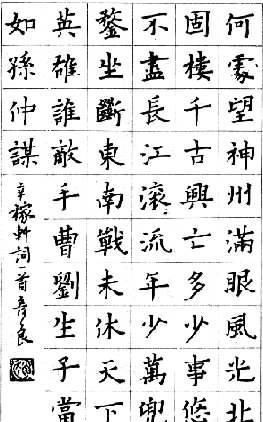 何處望神州滿眼風光北
固樓千古興亡多少事悠
不盡長江滾流年少萬兜
鍪坐斷東南戰未休天下
英雄誰敵手曹劉生子當
如孫仲謀
辛稼軒詞一首